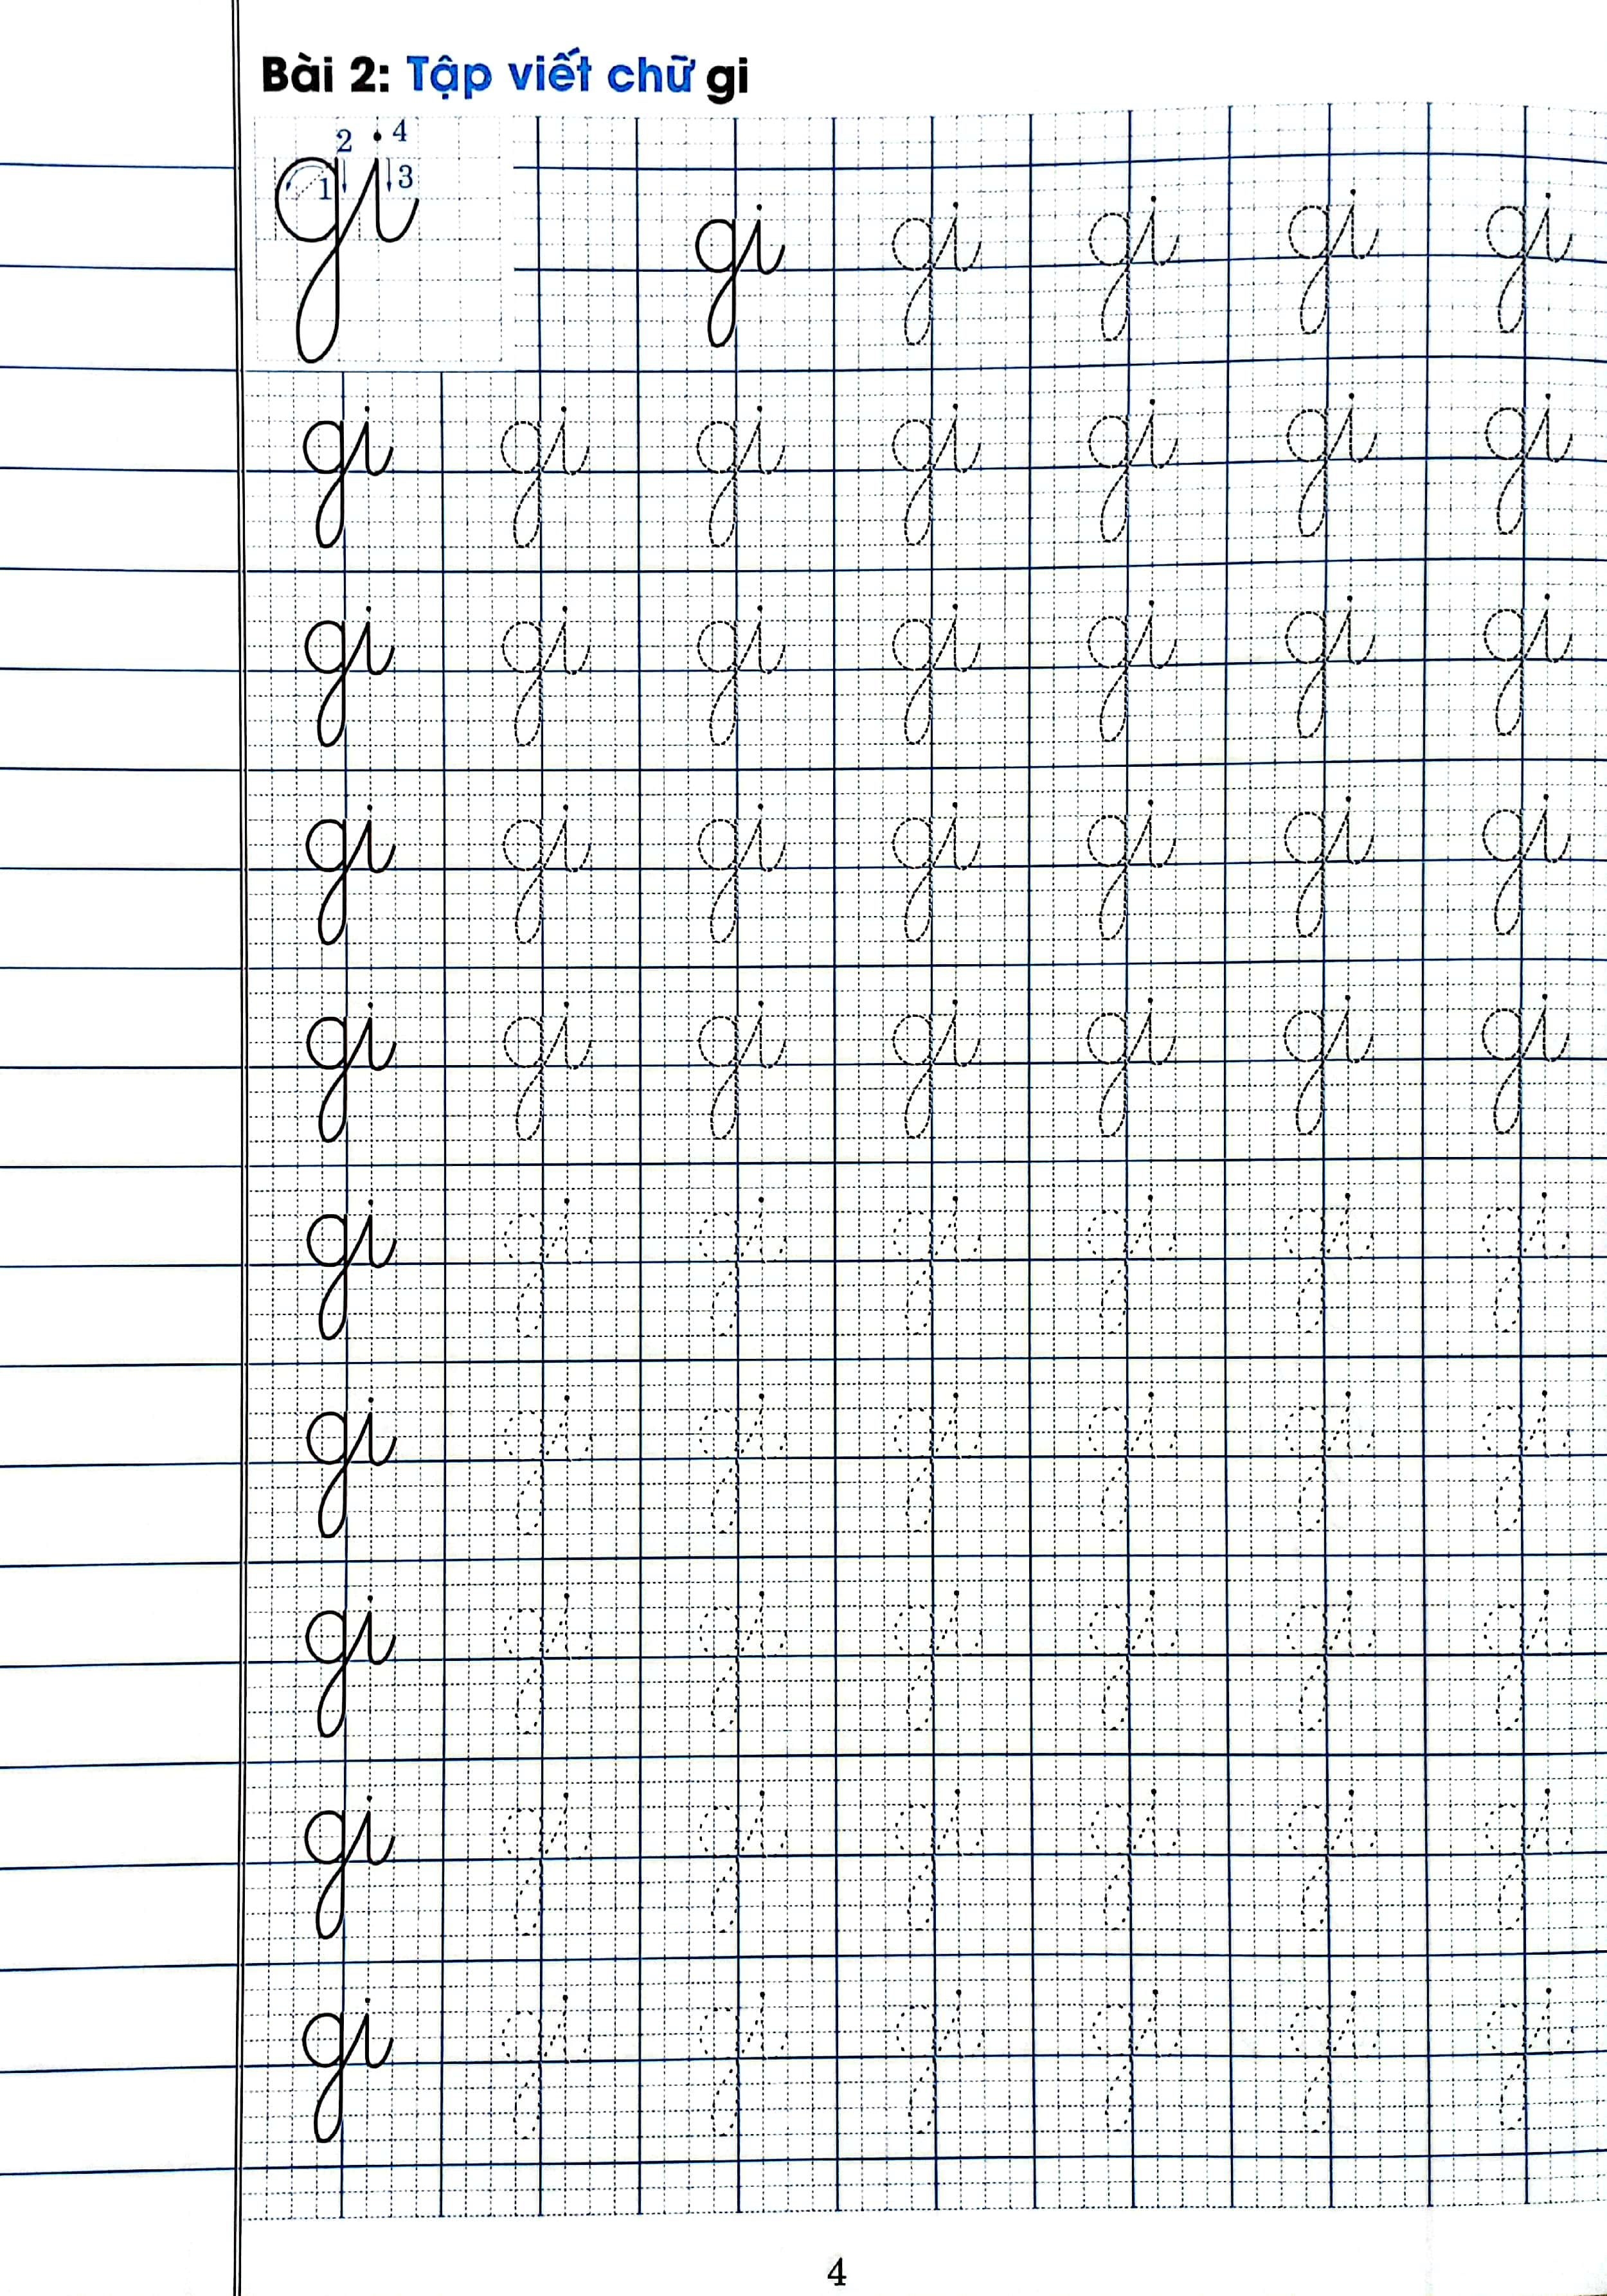 Bài 2: Tập viết chữ gi
2 4
1 3
gi
gi gi gi gi gi
gi gi gi gi gi gi gi
gi gi gi gi gi gi gi
gi gi gi gi gi gi gi
gi gi gi gi gi gi gi
gi gi gi gi gi gi gi
gi gi gi gi gi gi gi
gi gi gi gi gi gi gi
gi gi gi gi gi gi gi
gi gi gi gi gi gi gi
4